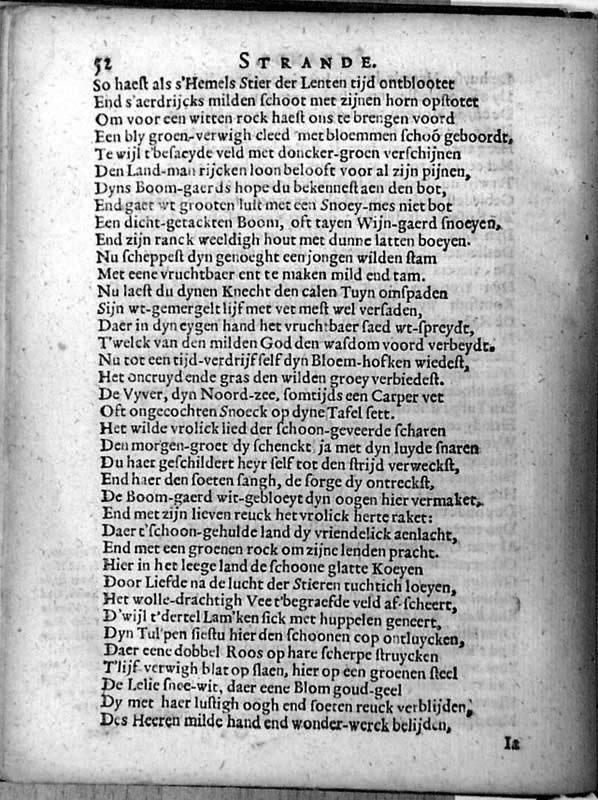 52 STRANDE.
So haeſt als s'Hemels Stier der Lenten tijd ontblootet
End s'aerdrijcks milden ſchoot met zijnen horn opſtotet
Om voor een witten rock haeſt ons te brengen voord
Een bly groen-verwigh cleed met bloemmen ſchoō geboordt,
Te wijl t'beſaeyde veld met doncker-groen verſchijnen
Den Land-man rijcken loon belooft voor al zijn pijnen,
Dyns Boom-gaerds hope du bekenneſt aen den bot,
End gaet wt grooten luſt met een Snoey-mes niet bot
Een dicht-getackten Boom, oft tayen Wijn-gaerd ſnoeyen,
End zijn ranck weeldigh hout met dunne latten boeyen.
Nu ſcheppeſt dyn genoeght een jongen wilden ſtam
Met eene vruchtbaer ent te maken mild end tam.
Nu laeſt du dynen Knecht den calen Tuyn omſpaden
Sijn wt-gemergelt lijf met vet meſt wel verſaden,
Daer in dyn eygen hand het vruchtbaer ſaed wt-ſpreydt,
T'welck van den milden God den waſdom voord verbeydt.
Nu tot een tijd-verdrijf ſelf dyn Bloem-hofken wiedeſt,
Het oncruyd ende gras den wilden groey verbiedeſt.
De Vyver, dyn Noord-zee, ſomtijds een Carper vet
Oft ongecochten Snoeck op dyne Tafel ſett.
Het wilde vrolick lied der ſchoon-geveerde ſcharen
Den morgen-groet dy ſchenckt ja met dyn luyde ſnaren
Du haer geſchildert heyr ſelf tot den ſtrijd verweckſt,
End haer den ſoeten ſangh, de ſorge dy ontreckſt,
De Boom-gaerd wit-gebloeyt dyn oogen hier vermaket,
End met zijn lieven reuck het vrolick herte raket:
Daer t'ſchoon-gehulde land dy vriendelick aenlacht,
End met een groenen rock om zijne lenden pracht.
Hier in het leege land de ſchoone glatte Koeyen
Door Liefde na de lucht der Stieren tuchtich loeyen,
Het wolle-drachtigh Vee t'begraefde veld af-ſcheert,
D'wijl t'dertel Lam'ken ſick met huppelen geneert,
Dyn Tulpen ſieſtu hier den ſchoonen cop ontluycken,
Daer eene dobbel Roos op hare ſcherpe ſtruycken
T'lijf-verwigh blat op ſlaen, hier op een groenen ſteel
De Lelie ſnee-wit, daer eene Blom goud-geel
Dy met haer luſtigh oogh end ſoeten reuck verblijden,
Des Heeren milde hand end wonder-werck belijden,
Ia